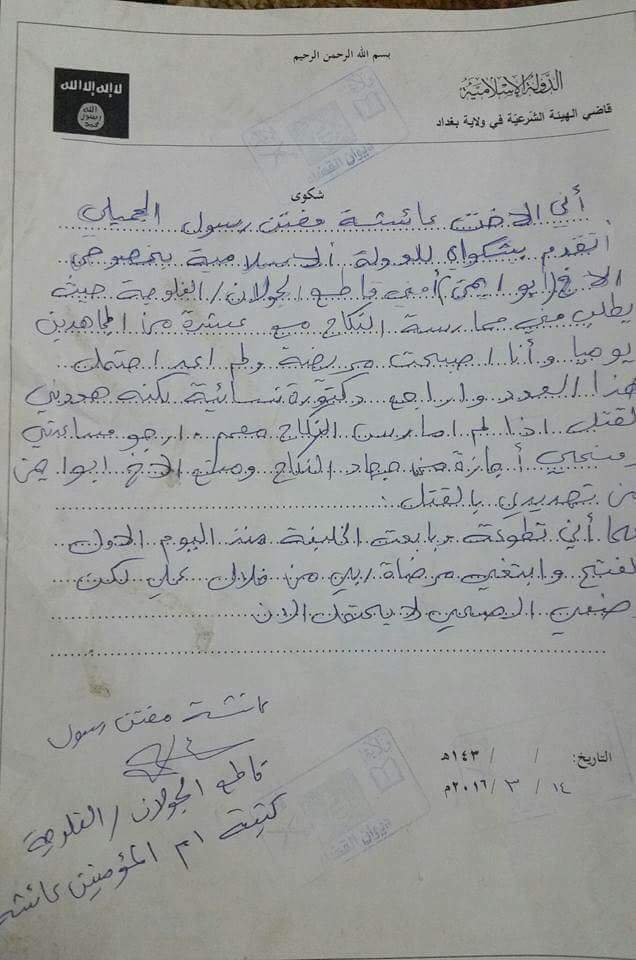 بسم الله الرحمن الرحيم
الدولة الإسلامية
قاضي الهيئة الشرعية في ولاية بغداد
لا إله إلا الله
الله
رسول
محمد
ديوان القضاء
شكوى
أني الاخت عائشة مفتن رسول الجميلي
أتقدم بشكواي للدولة الاسلامية بخصوص
الاخ (أبو ايمن) أمني قاطع الجولان / الفلوجة حيث
يطلب مني ممارسة النكاح مع عشرة من المجاهدين
يوميا وأنا اصبحت مريضة ولم اعد احتمل
هذا العدد واراجع دكتورة نسائية لكنه هددني
لقتل اذا لم امارس النكاح معهم . ارجو مساعدتي
ومنحي أجازة من جهاد النكاح ومنع الاخ ابو ايمن
من تهديدي بالقتل .
كما أني تطوعت وبايعت الخليفة منذ اليوم الاول
لفتح وابتغي مرضاة ربي من خلال عملي لكن
وضعي الصحي لا يحتمل الان
عائشة مفتن رسول
قاطع الجولان / الفلوجة
كتيبة ام المؤمنين عائشة
التاريخ: / / ١٤٣هـ
١٤ / ٣ / ٢٠١٦م
ديوان القضاء